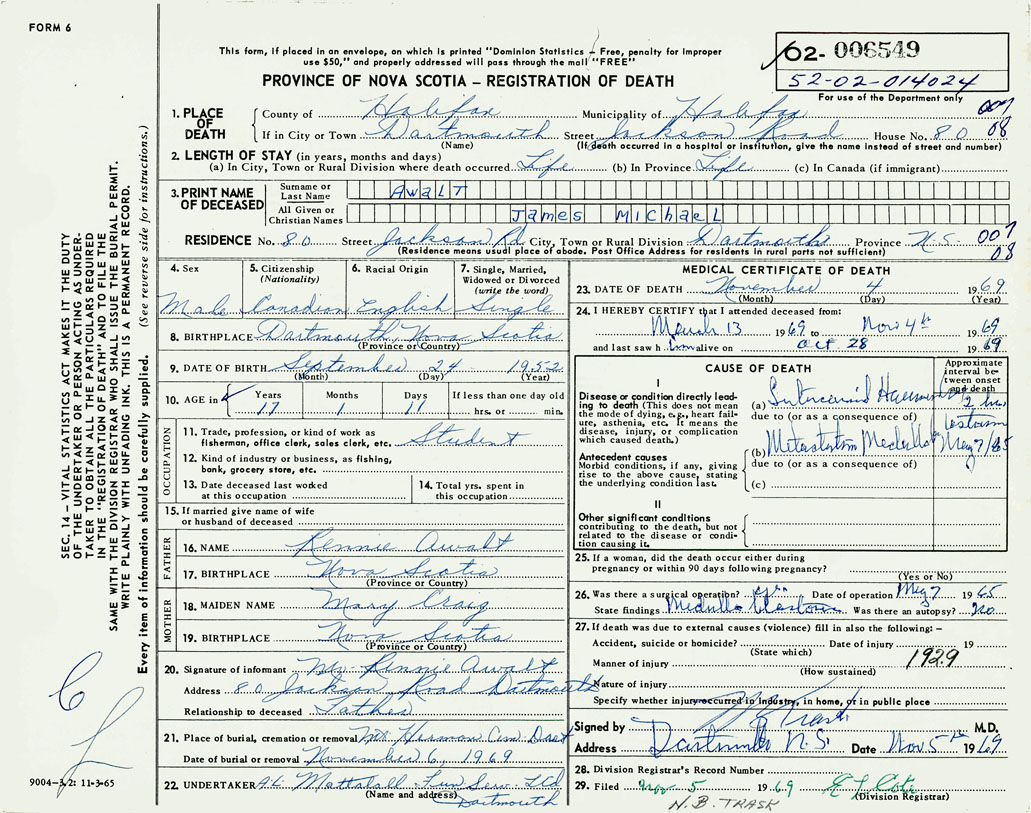 FORM 6
This form, if placed in an envelope, on which is printed "Dominion Statistics - Free, penalty for improper
use $50," and properly addressed will pass through the mail "FREE"
PROVINCE OF NOVA SCOTIA – REGISTRATION OF DEATH
02- 006549
52-02-014024
For use of the Department only
1. PLACE OF DEATH
County of Halifax Municipality of Halifax 007
If in City or Town Dartmouth Street Jackson Road House No. 80 08
(Name) (If death occurred in a hospital or institution, give the name instead of street and number)
2. LENGTH OF STAY (in years, months and days)
(a) In City, Town or Rural Division where death occurred Life (b) In Province Life (c) In Canada (if immigrant)
3. PRINT NAME OF DECEASED
Surname or Last Name AWALT
All Given or Christian Names JAMES MICHAEL
RESIDENCE No. 80 Street Jackson Rd City, Town or Rural Division Dartmouth Province N.S. 007
(Residence means usual place of abode. Post Office Address for residents in rural parts not sufficient) 08
4. Sex
Male
5. Citizenship (Nationality)
Canadian
6. Racial Origin
English
7. Single, Married, Widowed or Divorced (write the word)
Single
8. BIRTHPLACE Dartmouth, Nova Scotia
(Province or Country)
9. DATE OF BIRTH September 24 1952
(Month) (Day) (Year)
10. AGE in Years Months Days If less than one day old
17 1 11 hrs. or min.
OCCUPATION
11. Trade, profession, or kind of work as Student
fisherman, office clerk, sales clerk, etc.
12. Kind of industry or business, as fishing,
bank, grocery store, etc.
13. Date deceased last worked at this occupation
14. Total yrs. spent in this occupation
15. If married give name of wife
or husband of deceased
FATHER
16. NAME Rennie Awalt
17. BIRTHPLACE Nova Scotia
(Province or Country)
MOTHER
18. MAIDEN NAME Mary Craig
19. BIRTHPLACE Nova Scotia
(Province or Country)
20. Signature of informant Mr. Rennie Awalt
Address 80 Jackson Road Dartmouth
Relationship to deceased Father
21. Place of burial, cremation or removal Mt. Hermon Cem Dart
Date of burial or removal November 6, 1969
22. UNDERTAKER Mattatall Fun Serv Ltd
(Name and address) Dartmouth
MEDICAL CERTIFICATE OF DEATH
23. DATE OF DEATH November 4 1969
(Month) (Day) (Year)
24. I HEREBY CERTIFY that I attended deceased from:
March 13 1969 to Nov 4th 1969
and last saw him alive on Oct 28 1969
CAUSE OF DEATH
Approximate interval between onset and death
I
Disease or condition directly leading to death (This does not mean the mode of dying, e.g., heart failure, asthenia, etc. It means the disease, injury, or complication which caused death.)
(a) 2 hrs
due to (or as a consequence of)
Antecedent causes
Morbid conditions, if any, giving rise to the above cause, stating the underlying condition last.
(b) May 7/65
due to (or as a consequence of)
(c)
II
Other significant conditions contributing to the death, but not related to the disease or condition causing it.
25. If a woman, did the death occur either during
pregnancy or within 90 days following pregnancy?
(Yes or No)
26. Was there a surgical operation? yes. Date of operation May 7 1965
State findings Medulla Was there an autopsy? no.
27. If death was due to external causes (violence) fill in also the following: –
Accident, suicide or homicide? Date of injury 19
(State which)
Manner of injury 1929
(How sustained)
Nature of injury
Specify whether injury occurred in industry, in home, or in public place
Signed by Trask M.D.
Address Dartmouth N.S. Date Nov 5th 1969
28. Division Registrar's Record Number
29. Filed Nov 5 1969
(Division Registrar)
N.B. TRASK
SEC. 14 – VITAL STATISTICS ACT MAKES IT THE DUTY
OF THE UNDERTAKER OR PERSON ACTING AS UNDER-
TAKER TO OBTAIN ALL THE PARTICULARS REQUIRED
IN THE "REGISTRATION OF DEATH" AND TO FILE THE
SAME WITH THE DIVISION REGISTRAR WHO SHALL ISSUE THE BURIAL PERMIT.
WRITE PLAINLY WITH UNFADING INK. THIS IS A PERMANENT RECORD.
Every item of information should be carefully supplied. (See reverse side for instructions.)
9004-3.2: 11-3-65